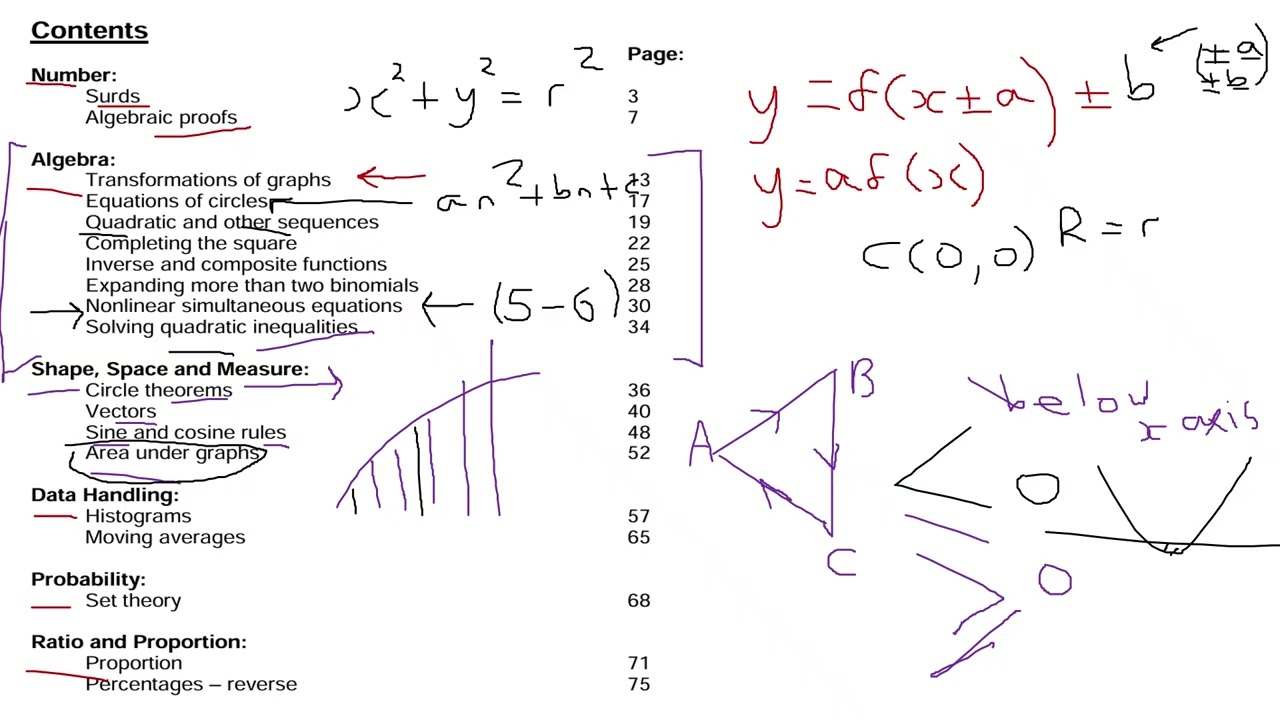 Contents
Page:
Number:
Surds 3
Algebraic proofs 7
Algebra:
Transformations of graphs 13
Equations of circles 17
Quadratic and other sequences 19
Completing the square 22
Inverse and composite functions 25
Expanding more than two binomials 28
Nonlinear simultaneous equations 30
Solving quadratic inequalities 34
Shape, Space and Measure:
Circle theorems 36
Vectors 40
Sine and cosine rules 48
Area under graphs 52
Data Handling:
Histograms 57
Moving averages 65
Probability:
Set theory 68
Ratio and Proportion:
Proportion 71
Percentages – reverse 75
x² + y² = r²
an² + bn + c
(5 – 6)
y = f(x ± a) ± b
(± a
± b)
y = af(x)
C(0,0) R = r
A
B
C
below
x axis
< 0
≥ 0